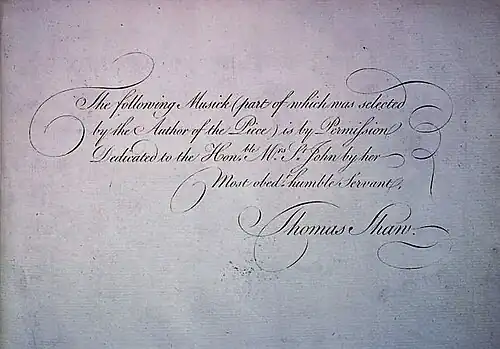 The following Musick (part of which was selected
by the Author of the Piece) is by Permission
Dedicated to the Hon.ble Mrs St John by her
Most obed.t humble Servant,
Thomas Shaw.